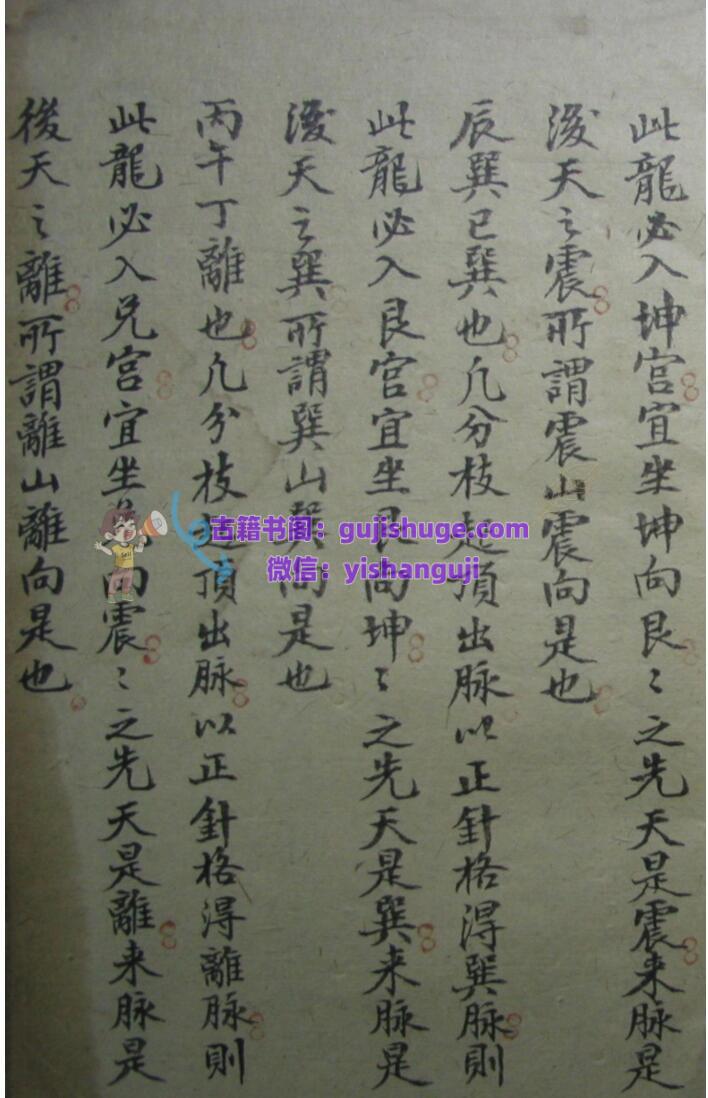 此龍必入坤宮宜坐坤向艮〻之先天是震来脉是
後天之震所謂震山震向是也
辰巽巳巽也凢分枝起頂出脉以正針格得巽脉則
此龍必入艮宮宜坐艮向坤〻之先天是巽来脉是
後天之巽所謂巽山巽向是也
丙午丁離也凢分枝起頂出脉以正針格得離脉則
此龍必入兑宮宜坐向震〻之先天是離来脉是
後天之離所謂離山離向是也
古籍书阁：gujishuge.com
微信：yishanguji